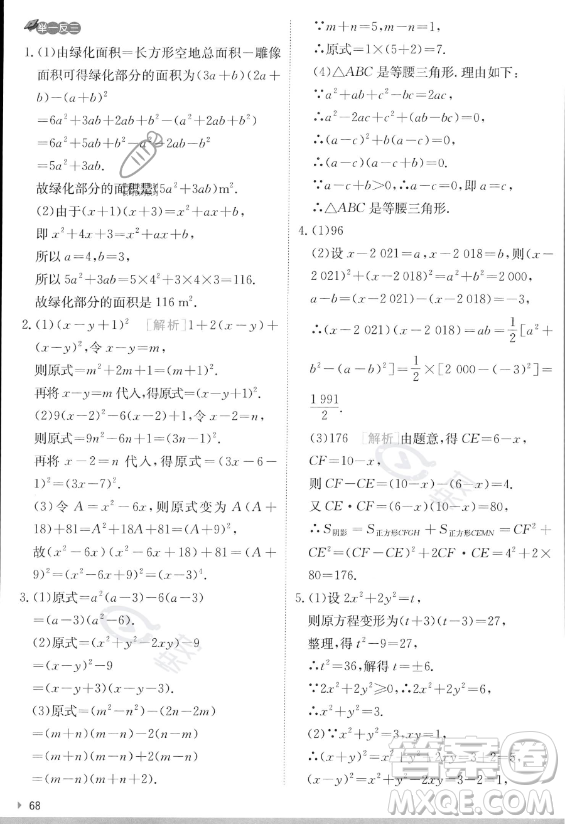 举一反三
1.(1)由绿化面积=长方形空地总面积-雕像
面积可得绿化部分的面积为(3a+b)(2a+
b)-(a+b)²
=6a²+3ab+2ab+b²-(a+b)²
=6a²+5ab+b²-a²-2ab-b²
=5a²+3ab.
故绿化部分的面积是(5a²+3ab)m².
(2)由于(x+1)(x+3)=x²+ax+b,
即 x²+4x+3=x²+ax+b,
所以 a=4,b=3,
所以 5a²+3ab=5×4²+3×4×3=116.
故绿化部分的面积是 116 m².
2.(1)(x-y+1)² [解析]1+2(x-y)+
(x-y)²,令 x-y=m,
则原式=m²+2m+1=(m+1)².
再将 x-y=m 代入,得原式=(x-y+1)².
(2)9(x-2)²-6(x-2)+1,令 x-2=n,
则原式=9n²-6n+1=(3n-1)².
再将 x-2=n 代入,得原式=(3x-6-
1)²=(3x-7)².
(3)令 A=x²-6x,则原式变为 A(A+
18)+81=A²+18A+81=(A+9)²,
故(x²-6x)(x²-6x+18)+81=(x²-6x+
9)²=(x-3)⁴.
3.(1)原式=a²(a-3)-6(a-3)
=(a-3)(a²-6).
(2)原式=(x²+y²-2xy)-9
=(x-y)²-9
=(x-y+3)(x-y-3).
(3)原式=(m²-2mn+n²)+(2m-2n)
=(m-n)²+2(m-n)
=(m-n)(m-n+2).
∵m+n=5,m-n=1,
∴原式=1×(5+2)=7.
(4)△ABC 是等腰三角形.理由如下:
∵a²-ab+c²-bc=2ac,
∴a²-2ac+c²+(ab-bc)=0,
∴(a-c)²-b(a-c)=0,
∵a-c+b>0,∴a-c=0,
∴a=c,
∴△ABC 是等腰三角形.
4.(1)96
(2)设 x-2 021=a,x-2 018=b,则(x-
2 021)²+(x-2 018)²=a²+b²=2 000,
a-b=(x-2 021)-(x-2 018)=-3,
∴(x-2 021)(x-2 018)=ab=1/2[a²+
b²-(a-b)²]=1/2×[2 000-(-3)²]=
1 991/2.
(3)176 [解析]由题意,得 CE=6-x,
CF=10-x,
∴CF-CE=(10-x)-(6-x)=4.
又 CE·CF=(6-x)(10-x)=80,
∴S阴影=S正方形CFGH+S正方形CEMN=CF²+
CE²=(CF-CE)²+2CF·CE=4²+2×
80=176.
5.(1)设 2x²+2y²=t,
则原方程变为(t+3)(t-3)=27,
整理,得 t²-9=27,
∴t²=36,解得 t=±6.
∵2x²+2y²≥0,∴2x²+2y²=6,
∴x²+y²=3.
(2)∵(x²+y²)=3,xy=1,
∴(x+y)²=x²+y²+2xy=3+2=5,
(x-y)²=x²+y²-2xy=3-2=1,
68
答案圈